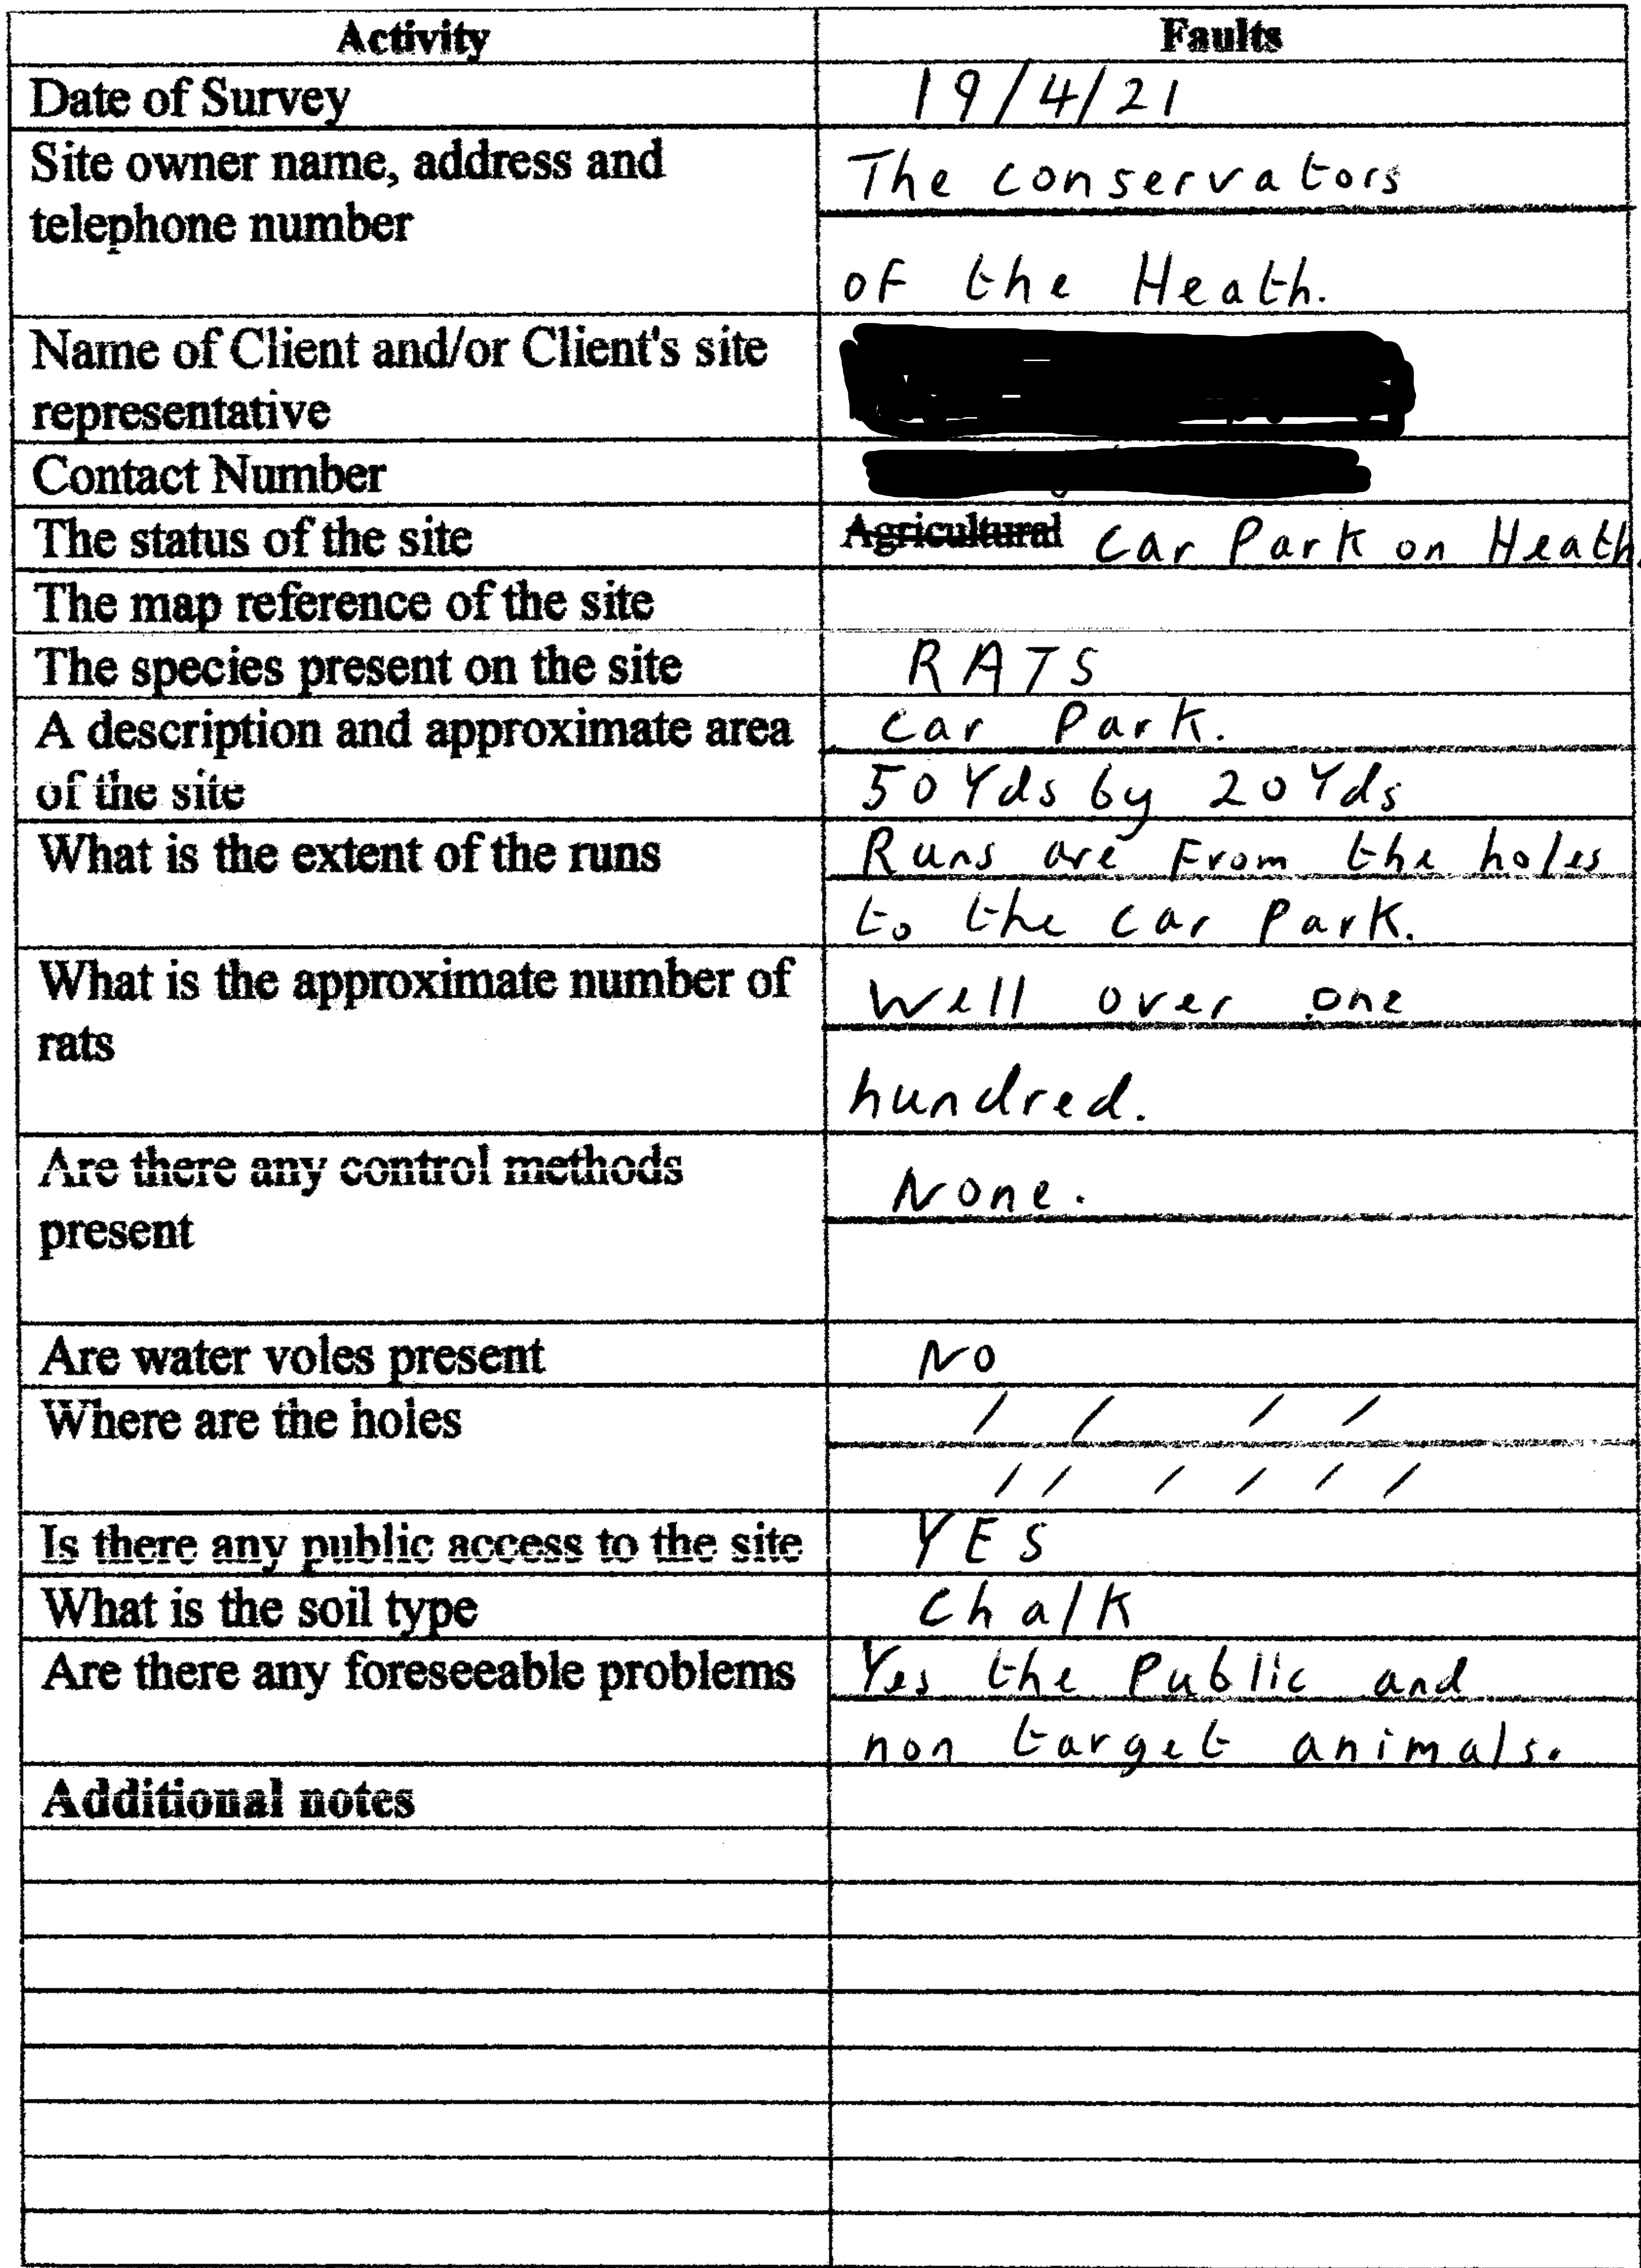 Activity Faults
Date of Survey 19/4/21
Site owner name, address and The conservators
telephone number
of the Heath.
Name of Client and/or Client's site
representative
Contact Number
The status of the site Agricultural Car Park on Heath.
The map reference of the site
The species present on the site RATS
A description and approximate area Car Park.
of the site 50 Yds by 20 Yds
What is the extent of the runs Runs are From the holes
to the car Park.
What is the approximate number of Well over one
rats
hundred.
Are there any control methods None.
present
Are water voles present NO
Where are the holes / / / /
/ / / / / /
Is there any public access to the site YES
What is the soil type chalk
Are there any foreseeable problems Yes the Public and
non target animals.
Additional notes